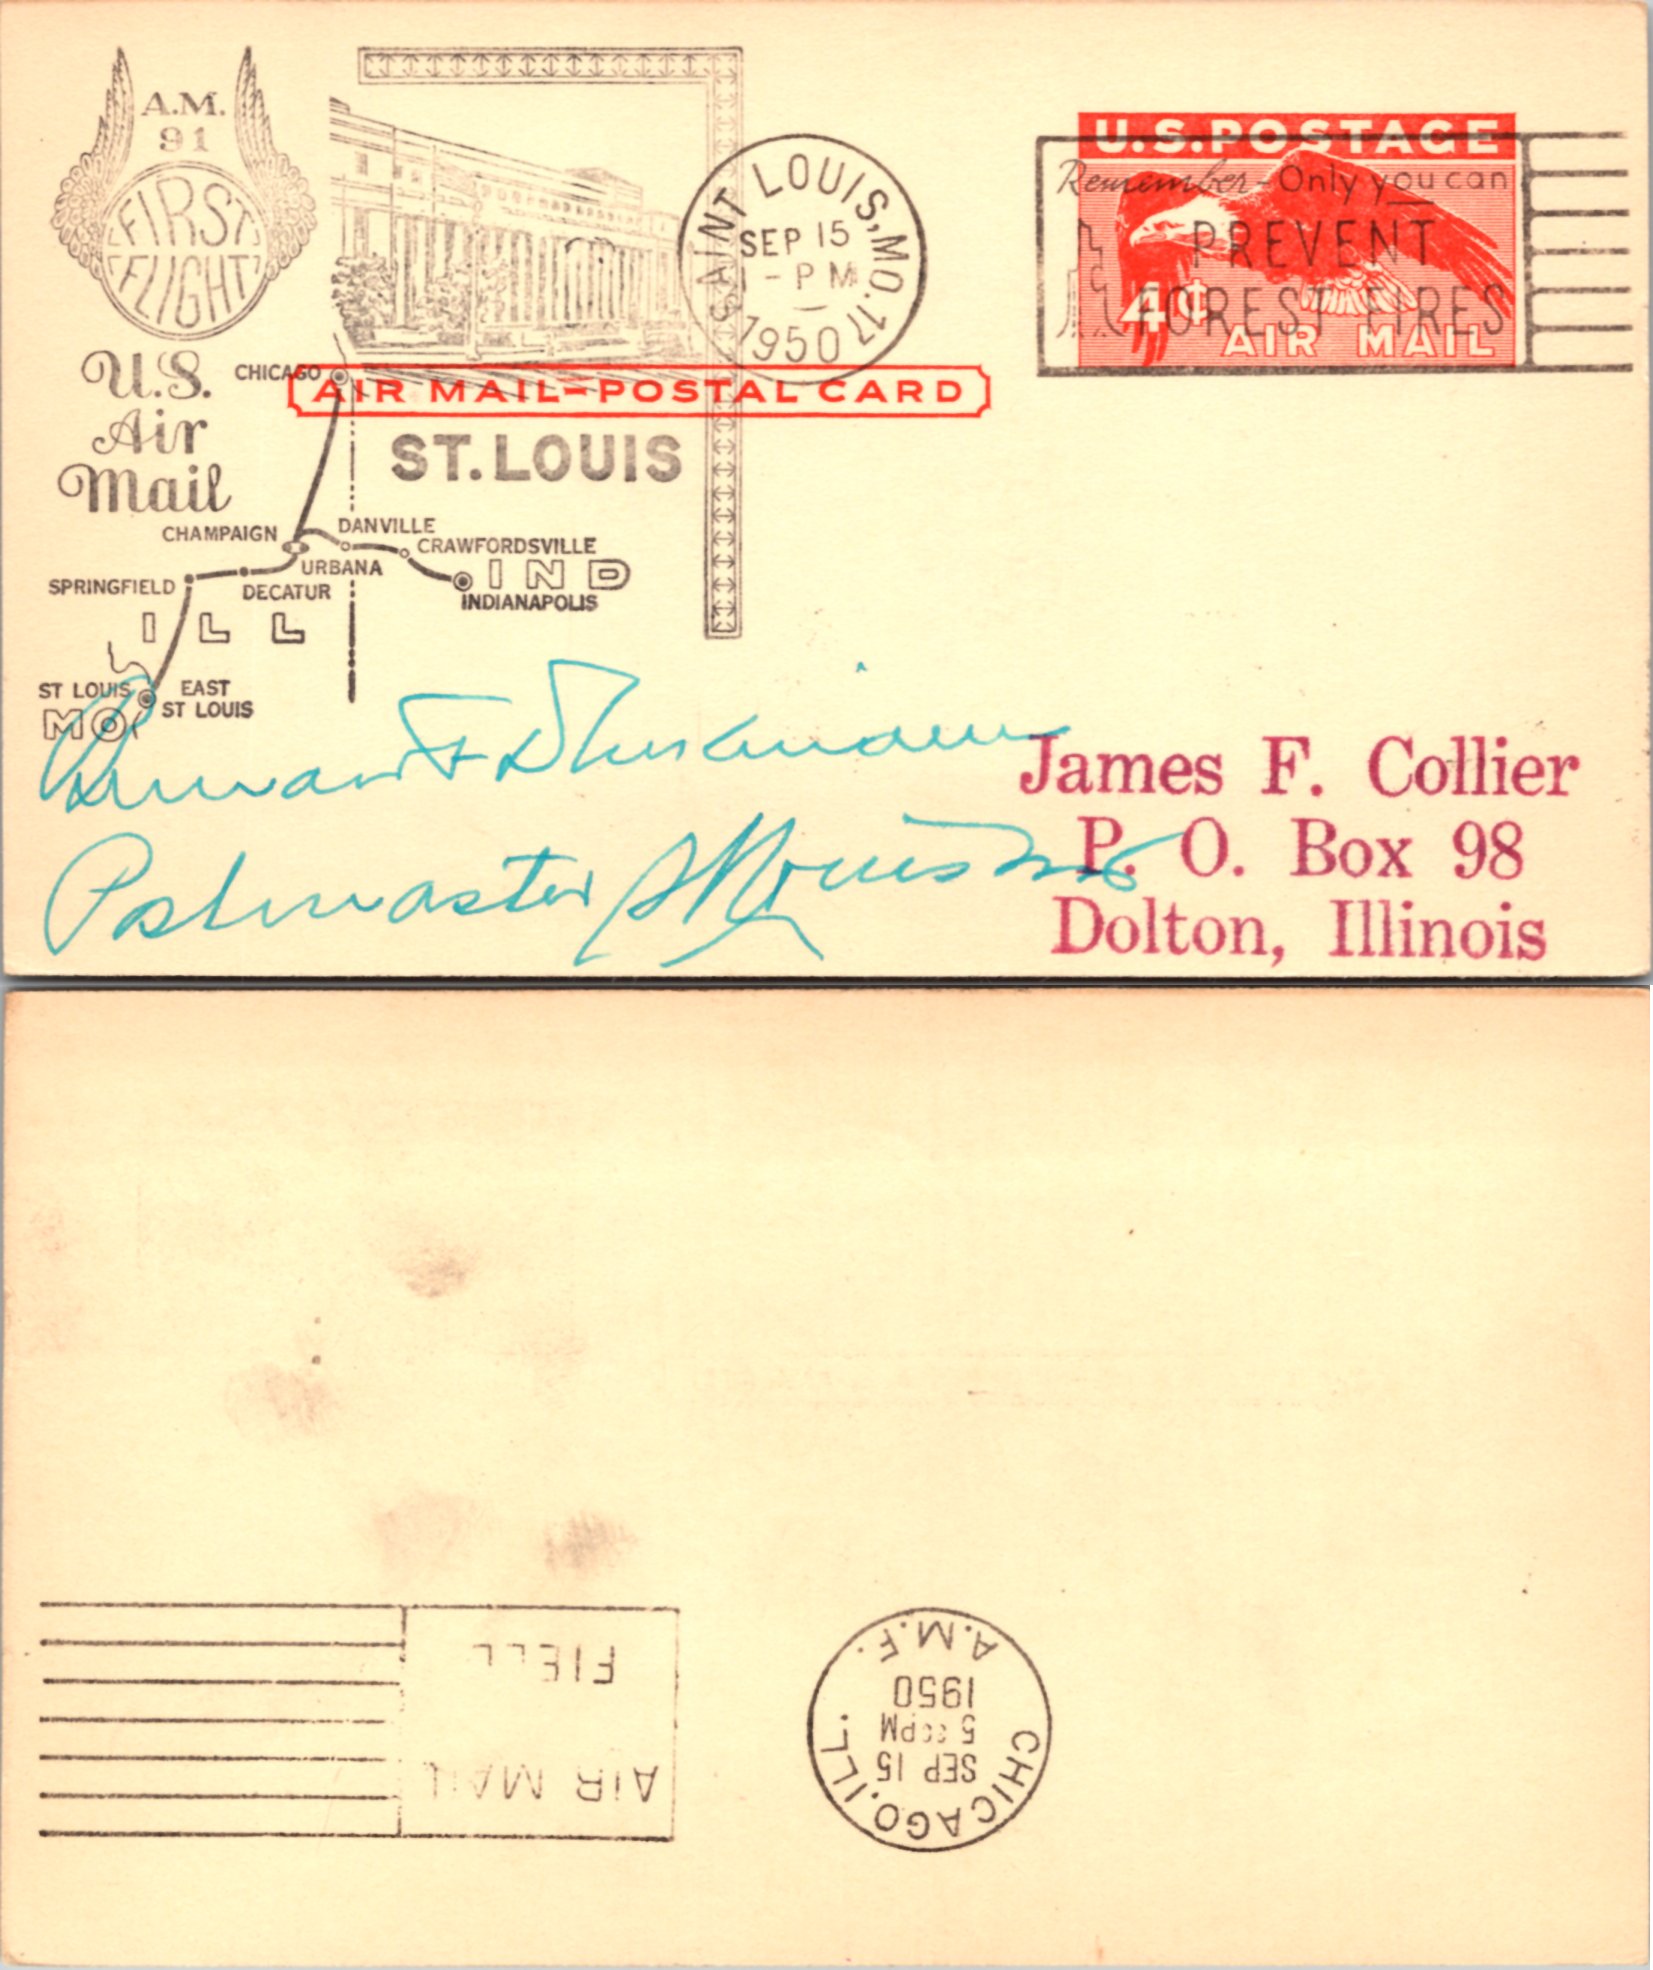 A.M.
91
FIRST
FLIGHT
U.S.
Air
Mail
SAINT LOUIS, MO. 17
SEP 15
1 - PM
1950
U.S.POSTAGE
Remember - Only you can
PREVENT
FOREST FIRES
4¢
AIR MAIL
AIR MAIL-POSTAL CARD
CHICAGO
ST. LOUIS
CHAMPAIGN
DANVILLE
CRAWFORDSVILLE
URBANA
IND
SPRINGFIELD
DECATUR
INDIANAPOLIS
ILL
ST LOUIS
EAST
ST LOUIS
MO
Postmaster St Louis Mo
James F. Collier
P. O. Box 98
Dolton, Illinois
AIR MAIL
FIEL
CHICAGO, ILL.
SEP 15
PM
1950
A.M.F.